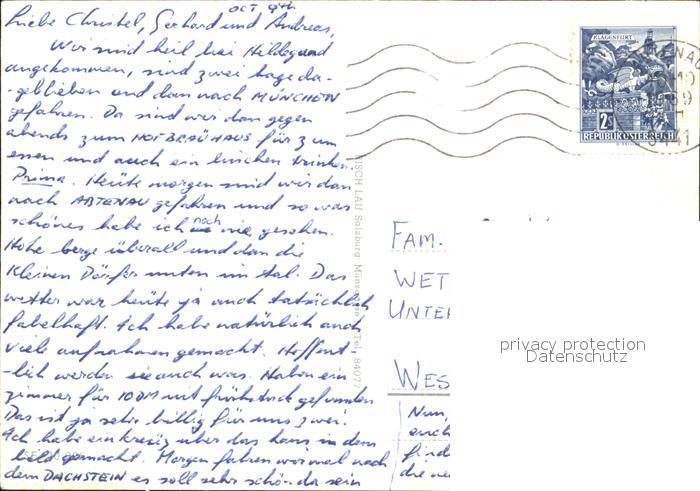 OCT 9th
Liebe Christel, Gerhard und Andreas,
Wir sind heil bei Hildegard
angekommen, sind zwei tage da-
-geblieben und dan nach MÜNCHEN
gefahren. Da sind wir dan gegen
abends zum HOFBRAÜHAUS für zum
essen und auch ein bischen trinken.
Prima. Heute morgen sind wir dan
nach ABTENAU gefahren und so was
schönes habe ich noch nie gesehen.
Hohe berge überall und dan die
Kleinen Dörfer unten im tal. Das
wetter war heute ja auch tatsächlich
fabelhaft. Ich habe natürlich auch
viele aufnahmen gemacht. Hoffent-
-lich werden sie auch was. Haben ein
zimmer für 10 DM mit frühstück gefunden
Das ist ja sehr billig für uns zwei.
Ich habe ein kreuz über das haus in dem
bild gemacht. Morgen fahren wir mal nach
dem DACHSTEIN es soll sehr schön da sein
KLAGENFURT
2S
REPUBLIK ÖSTERREICH
5441
LAU Salzburg
Tel. 84077
FAM.
WET
UNTER
WES
privacy protection
Datenschutz
Nun,
auch
find
die we